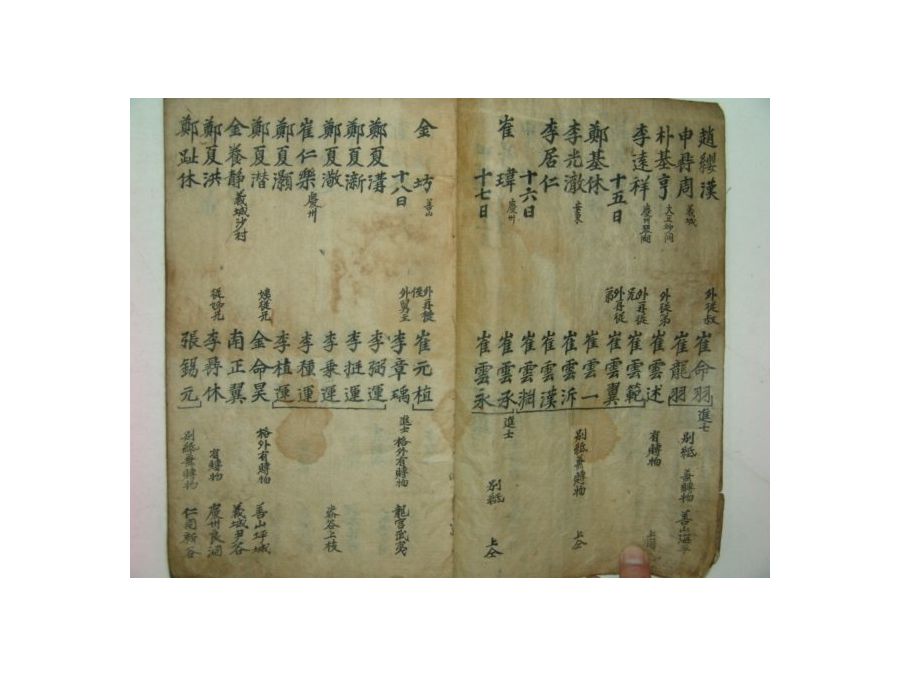 趙纓漢
申㝵周 義城
朴基亨
李遠祥 慶州
十五日
鄭基休
李光澈 安東
李居仁
十六日
崔瑋 慶州
十七日
外從叔 崔命羽 進士 別紙 善山
崔龍羽 無賻物
外從弟 崔雲述 有賻物
外再從兄 崔雲範
外再從弟 崔雲翼
崔雲一 別紙無賻物 上仝
崔雲泝
崔雲漢
崔雲渊
崔雲承 進士
崔雲永 別紙 上仝
金坊 善山
十八日
鄭夏溝
鄭夏漸
鄭夏澈
崔仁樂 慶州
鄭夏灝
鄭夏潜
金養靜 義城沙村
鄭夏洪
鄭趾休
外再從侄 崔元植
李章瑀 進士 格外有賻物 龍宮武夷
李弼運
李挺運
李秉運 上枝
李種運
李植運
姨從兄 金命昊 格外有賻物 善山坪城
南正翼 義城尹谷
從姊兄 李㝵休 有賻物 慶州良洞
張錫元 別紙無賻物 仁同新谷